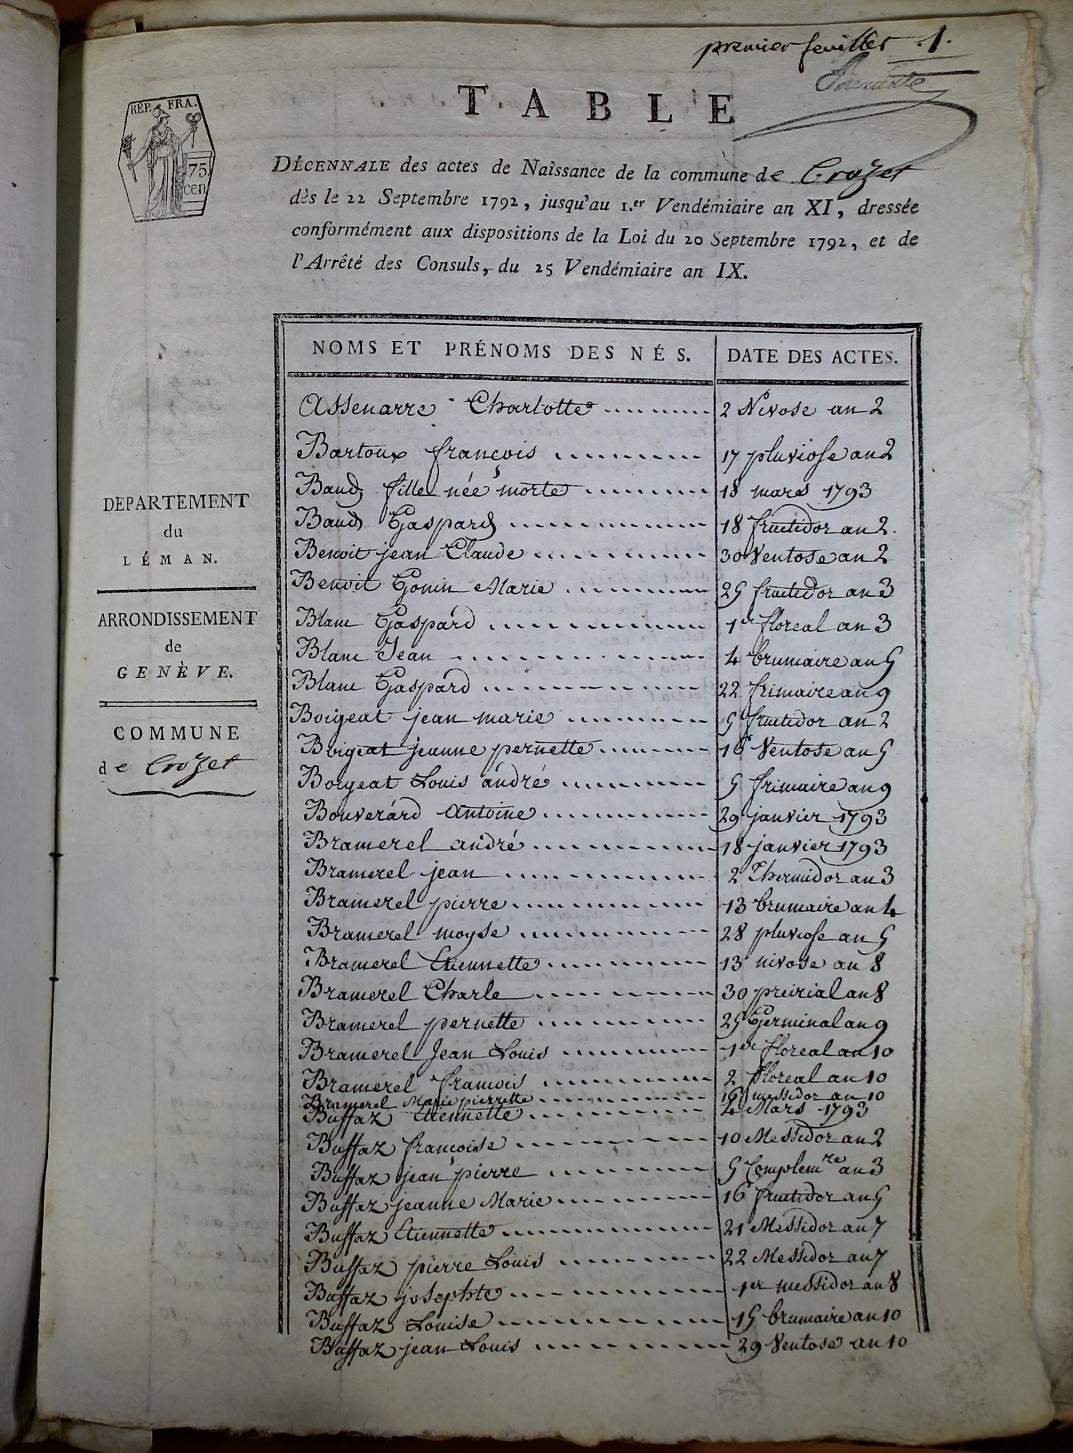 premier feuillet .1.
RÉP. FRA.
75
cen
TABLE
DÉCENNALE des actes de Naissance de la commune de Crozet
dès le 22 Septembre 1792, jusqu'au 1.er Vendémiaire an XI, dressée
conformément aux dispositions de la Loi du 20 Septembre 1792, et de
l'Arrêté des Consuls, du 25 Vendémiaire an IX.
DEPARTEMENT
du
LÉMAN.
ARRONDISSEMENT
de
GENÈVE.
COMMUNE
de Crozet
NOMS ET PRÉNOMS DES NÉS. DATE DES ACTES.
Assenarre Charlotte 2 Nivose an 2
Bartoux françois 17 pluviose an 2
Baud fille née morte 18 mars 1793
Baud Gaspard 18 fructidor an 2.
Benoit jean Claude 30 Ventose an 2
Benoit Gonin Marie 25 fructidor an 3
Blanc Gaspard 1er floreal an 3
Blanc Jean 4 brumaire an 5
Blanc Gaspard 22 frimaire an 9
Boigeat jean marie 5 fructidor an 2
Boigeat jeanne pernette 16 Ventose an 5
Boigeat Louis andré 5 frimaire an 9
Bouverard antoine 29 janvier 1793
Bramerel andré 18 janvier 1793
Bramerel jean 2 Thermidor an 3
Bramerel pierre 13 brumaire an 4
Bramerel moyse 28 pluviose an 5
Bramerel Etiennette 13 nivose an 8
Bramerel Charle 30 preirial an 8
Bramerel pernette 25 Germinal an 9
Bramerel Jean Louis 1er floreal an 10
Bramerel francois 2 floreal an 10
Bramerel Marie pierrette messidor an 10
Buffaz Etiennette 4 Mars 1793
Buffaz francoise 10 Messidor an 2
Buffaz jean pierre 5 Complemre an 3
Buffaz jeanne Marie 16 fructidor an 5
Buffaz Etiennette 21 Messidor an 7
Buffaz pierre Louis 22 Messidor an 7
Buffaz josephte 1er messidor an 8
Buffaz Louise 15 brumaire an 10
Buffaz jean Louis 29 Ventose an 10